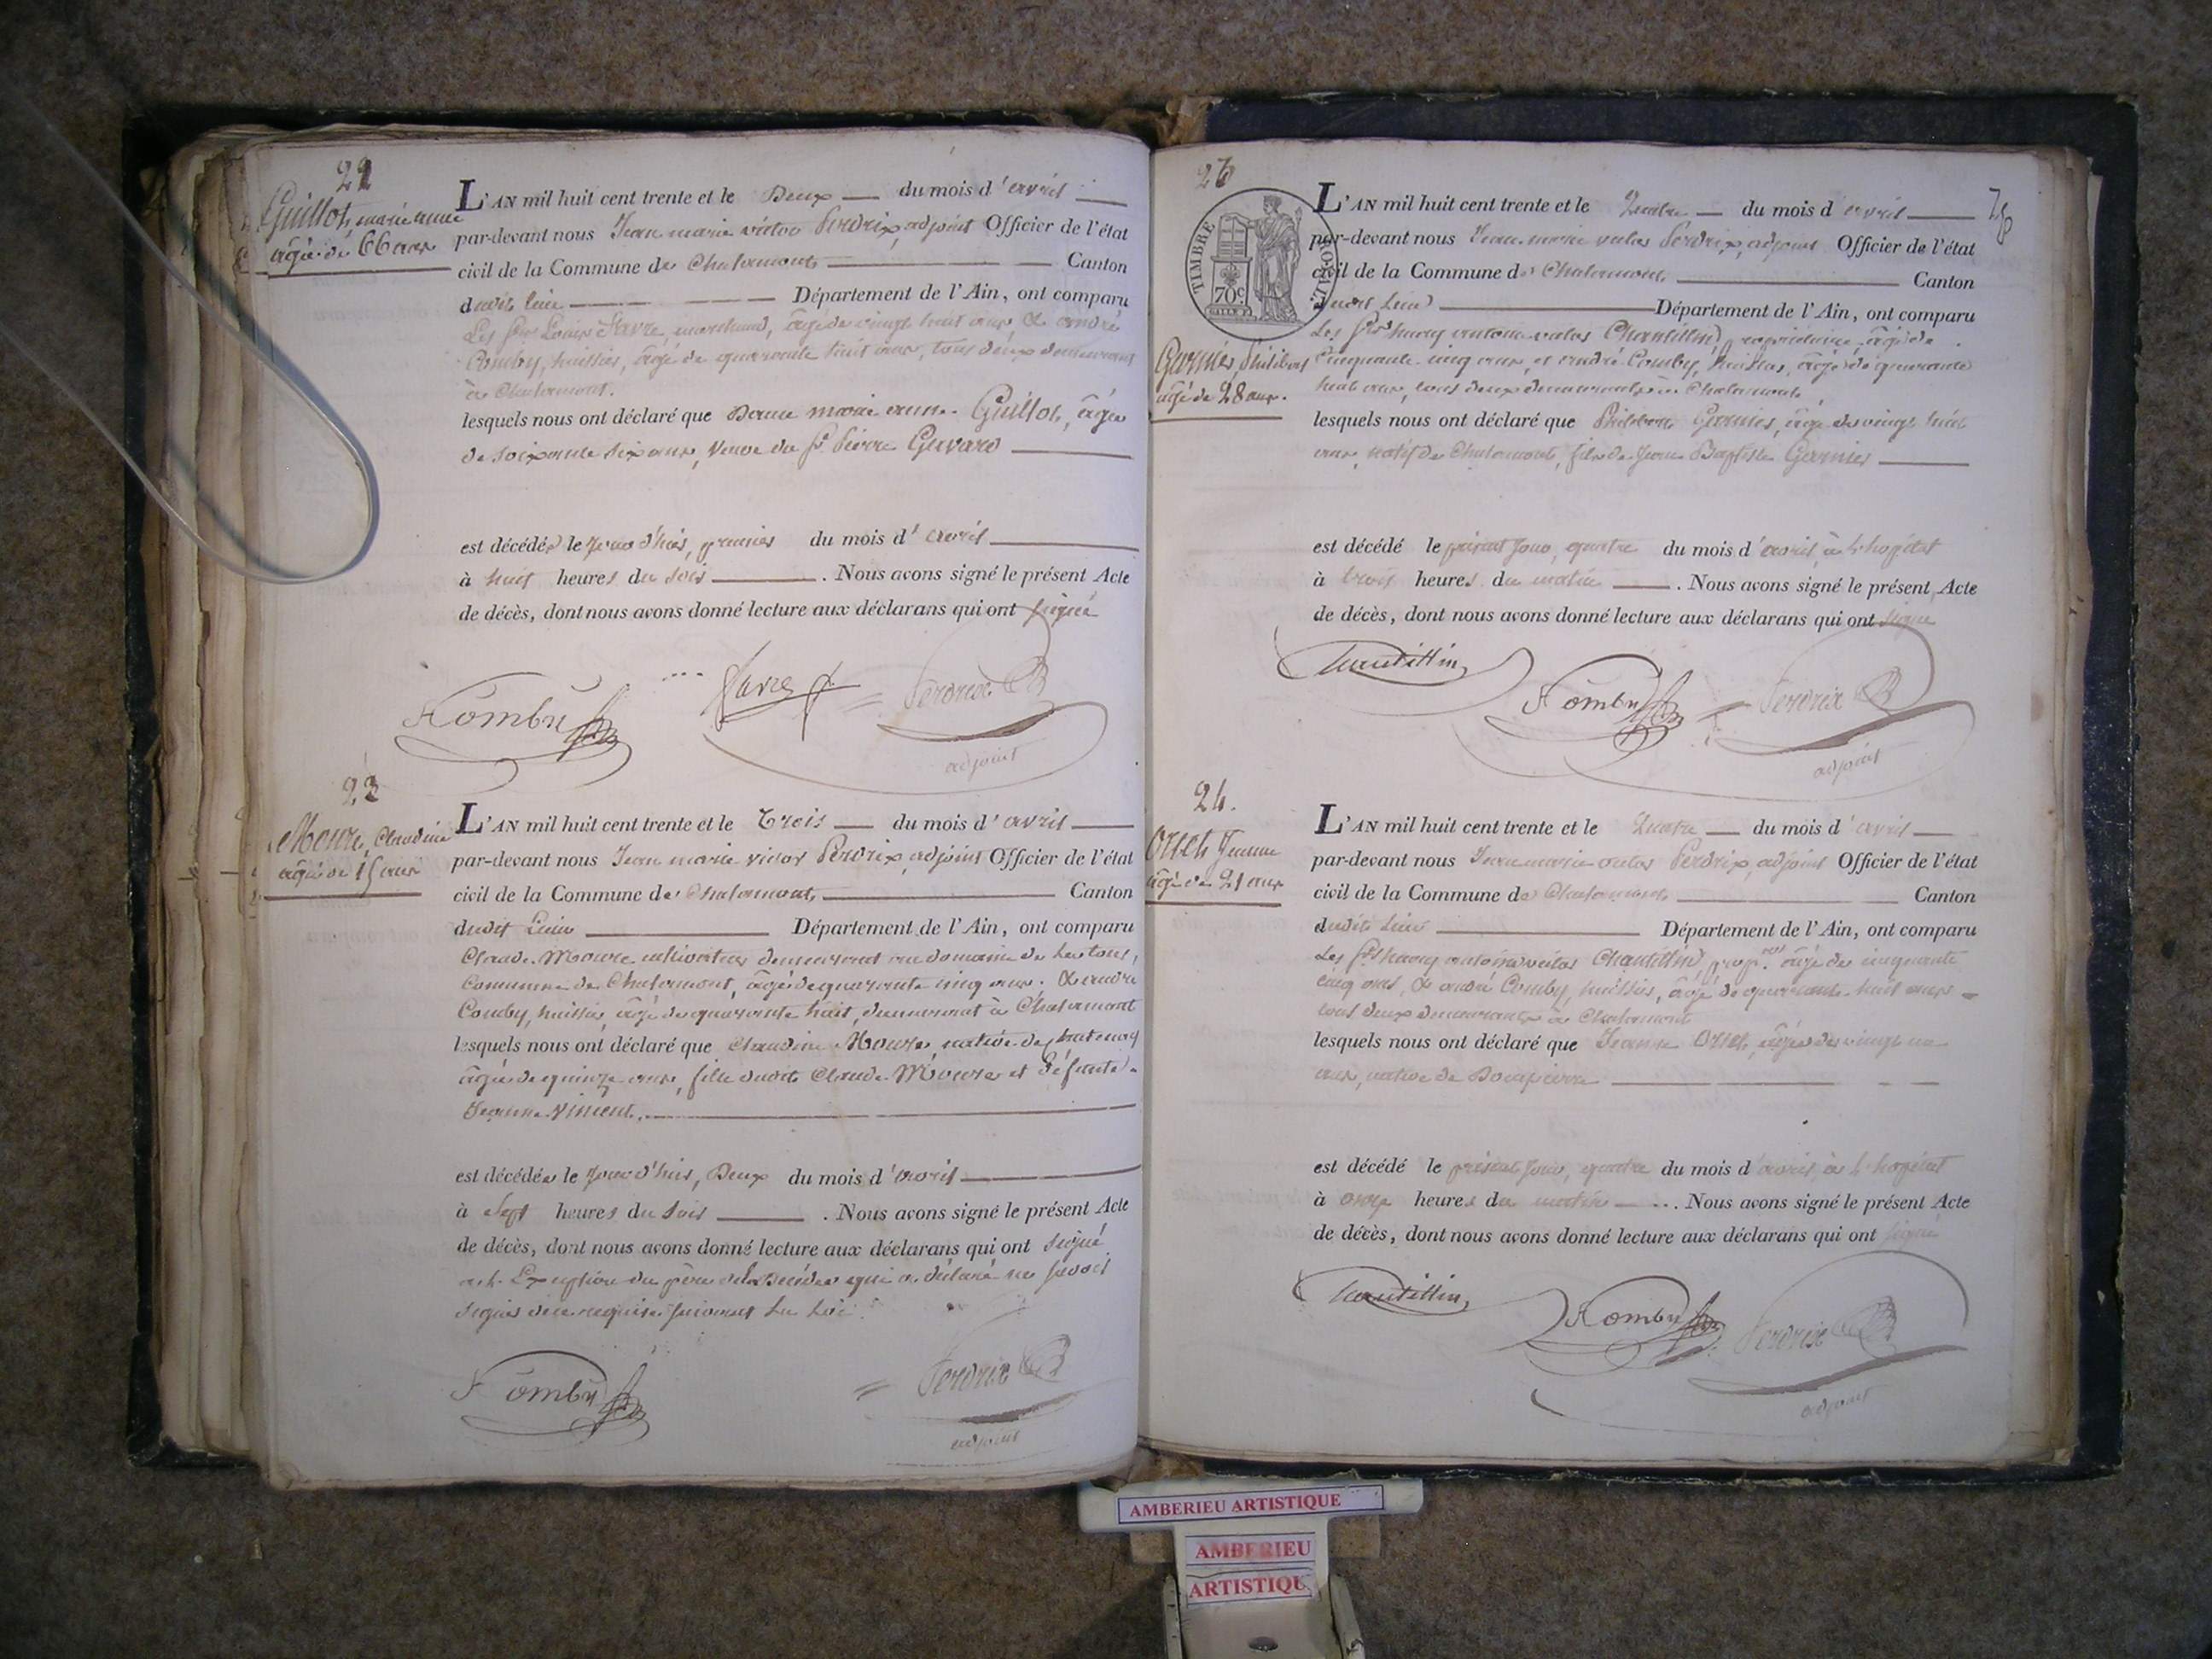 22
Guillot, marie anne
âgée de 66 ans
L'AN mil huit cent trente et le Deux du mois d'avril
par-devant nous Jean marie victor Perdrix, adjoint Officier de l'état
civil de la Commune de Chalamont Canton
dudit lieu Département de l'Ain, ont comparu
Les Srs Louis Favre, marchand, âgé de vingt huit ans, & andré
Comby, huissier, âgé de quarante huit ans, tous deux demeurant
à Chalamont.
lesquels nous ont déclaré que Dame marie anne Guillot, âgée
de soixante six ans, veuve du Sr Pierre Guvard
est décédée le jour d'hier, premier du mois d'avril
à huit heures du soir. Nous avons signé le présent Acte
de décès, dont nous avons donné lecture aux déclarans qui ont signé
Comby Favre Perdrix
adjoint
23
Moure, Claudine
âgée de 15 ans
L'AN mil huit cent trente et le Trois du mois d'avril
par-devant nous Jean marie victor Perdrix, adjoint Officier de l'état
civil de la Commune de Chalamont Canton
dudit Lieu Département de l'Ain, ont comparu
Claude Moure cultivateur demeurant au domaine de
Commune de Chalamont, âgé de quarante cinq ans. & andré
Comby, huissier, âgé de quarante huit, demeurant à Chalamont
lesquels nous ont déclaré que Claudine Moure, native de
âgée de quinze ans, fille dudit Claude Moure et défunte
Jeanne Vincent.
est décédée le jour d'hier, Deux du mois d'avril
à Sept heures du soir. Nous avons signé le présent Acte
de décès, dont nous avons donné lecture aux déclarans qui ont signé
à l'Exception du père de la Décédée qui a déclaré ne savoir
signer de ce requis suivant la Loi.
Comby Perdrix
adjoint
TIMBRE ROYAL
70c
Garnier, Philibert
âgé de 28 ans.
L'AN mil huit cent trente et le Quatre du mois d'avril
par-devant nous Jean marie victor Perdrix, adjoint Officier de l'état
civil de la Commune de Chalamont Canton
dudit Lieu Département de l'Ain, ont comparu
Les Srs antoine victor Chantillin, propriétaire âgé de
Cinquante cinq ans, et andré Comby, huissier, âgé de quarante
huit ans, tous deux demeurants à Chalamont
lesquels nous ont déclaré que Philibert Garnier, âgé de vingt huit
ans, natif de Chalamont, fils de Jean Baptiste Garnier
est décédé le présent jour, quatre du mois d'avril, à L'hopital
à trois heures du matin. Nous avons signé le présent Acte
de décès, dont nous avons donné lecture aux déclarans qui ont signé
Chantillin
Comby Perdrix
adjoint
24.
Orset Jeanne
âgée de 21 ans
L'AN mil huit cent trente et le Quatre du mois d'avril
par-devant nous Jean marie victor Perdrix, adjoint Officier de l'état
civil de la Commune de Chalamont Canton
dudit Lieu Département de l'Ain, ont comparu
Les Srs antoine victor Chantillin, propre âgé de cinquante
cinq ans, & andré Comby, huissier, âgé de quarante huit ans
tous deux demeurants à Chalamont
lesquels nous ont déclaré que Jeanne Orset, âgée de vingt un
ans, native de Dompierre
est décédé le présent jour, quatre du mois d'avril, à L'hopital
à onze heures du matin. Nous avons signé le présent Acte
de décès, dont nous avons donné lecture aux déclarans qui ont signé
Chantillin
Comby Perdrix
adjoint
AMBERIEU ARTISTIQUE
AMBERIEU
ARTISTIQU